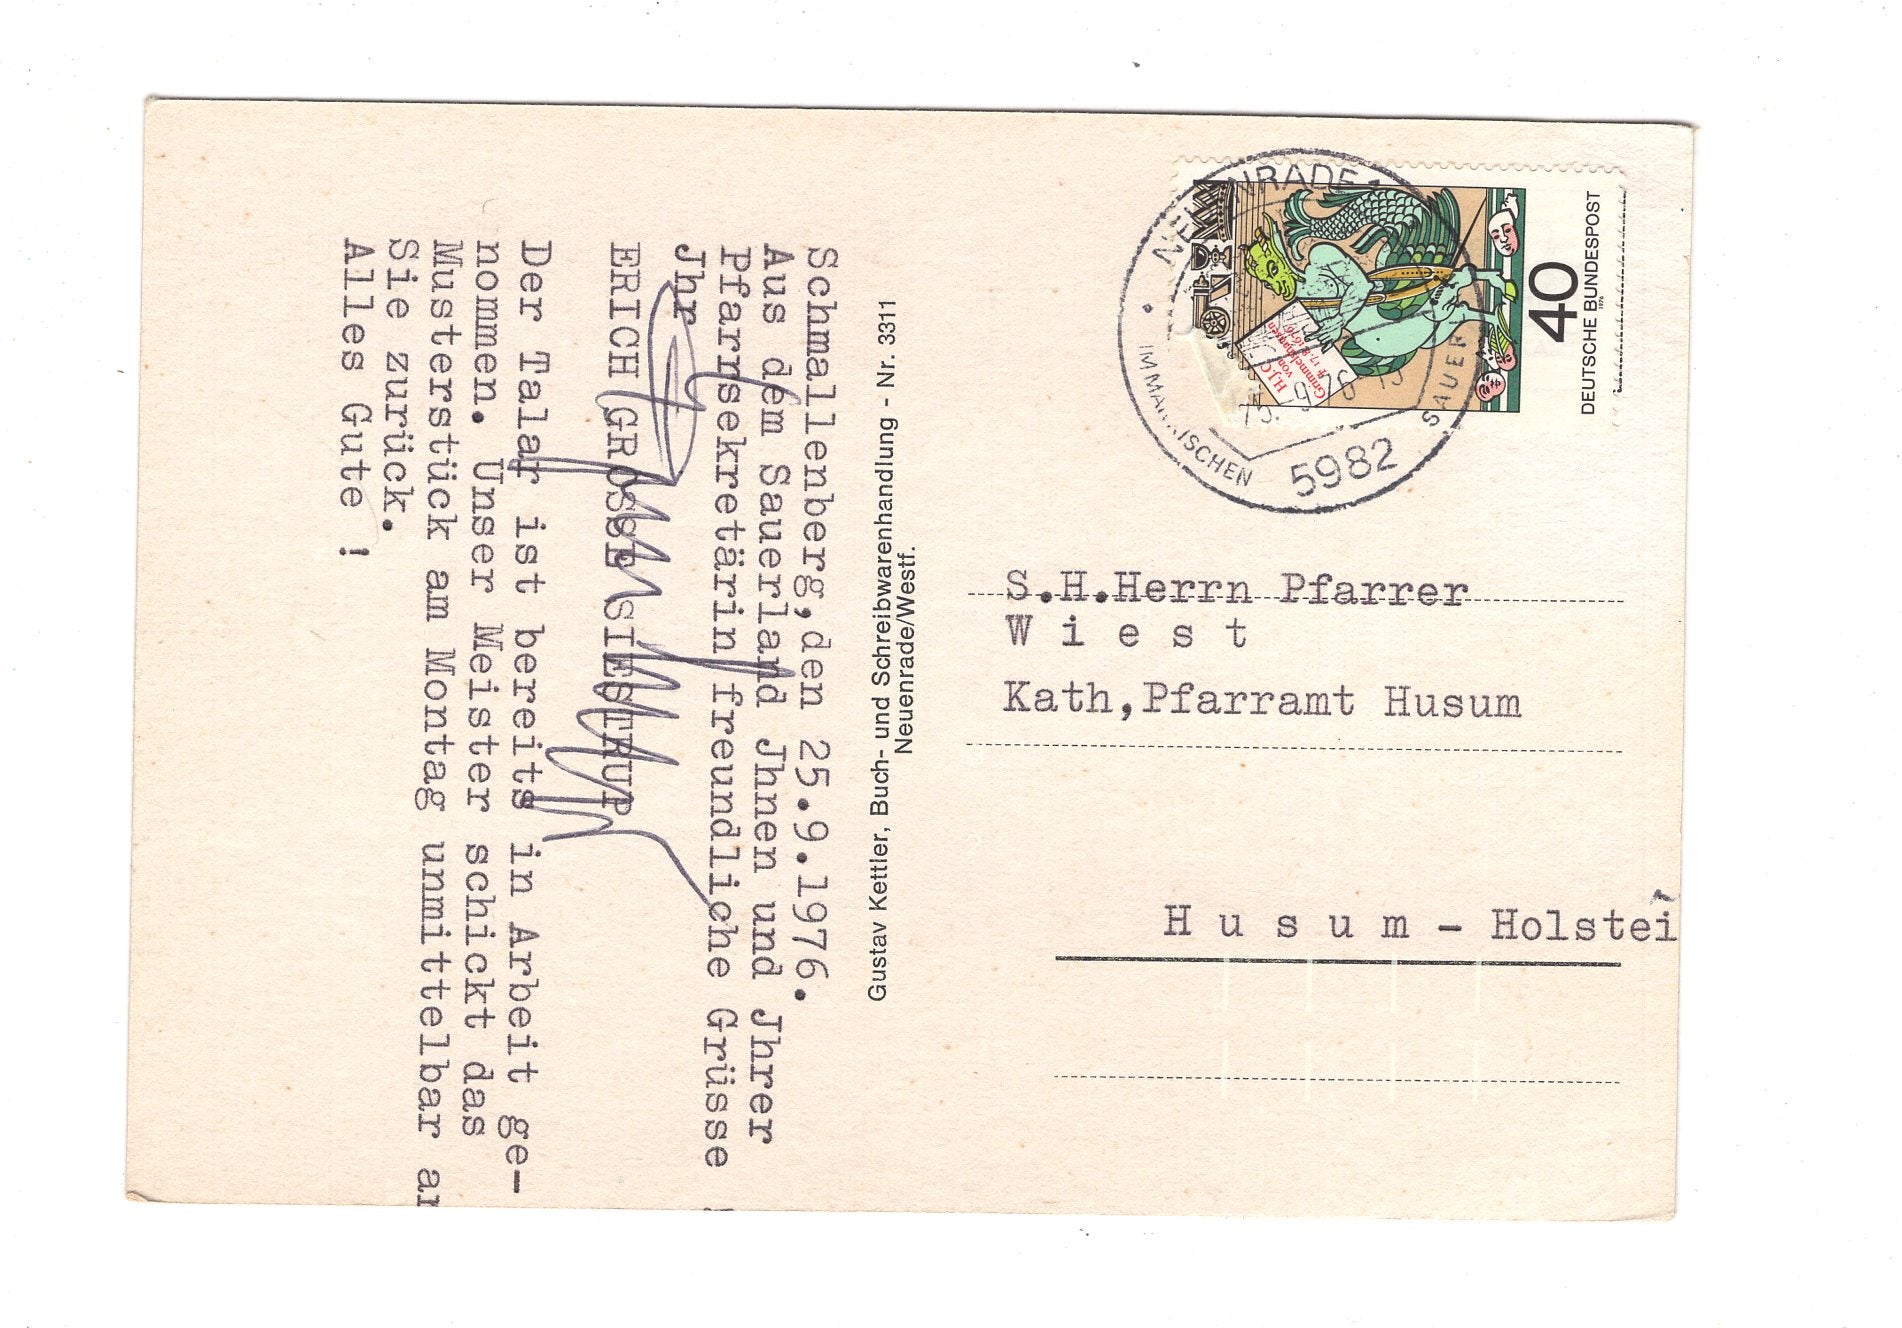 Schmallenberg,den 25.9.1976.
Aus dem Sauerland Jhnen und Jhrer
Pfarrsekretärin freundliche Grüsse
Jhr
ERICH GROSSE SIESTRUP
Der Talar ist bereits in Arbeit ge-
nommen. Unser Meister schickt das
Musterstück am Montag unmittelbar an
Sie zurück.
Alles Gute !
Gustav Kettler, Buch- und Schreibwarenhandlung - Nr. 3311
Neuenrade/Westf.
40
DEUTSCHE BUNDESPOST
1976
H.J.C.
von
Grimmelshausen
† 17.8.1676
5982
S.H.Herrn Pfarrer
W i e s t
Kath,Pfarramt Husum
H u s u m - Holstei